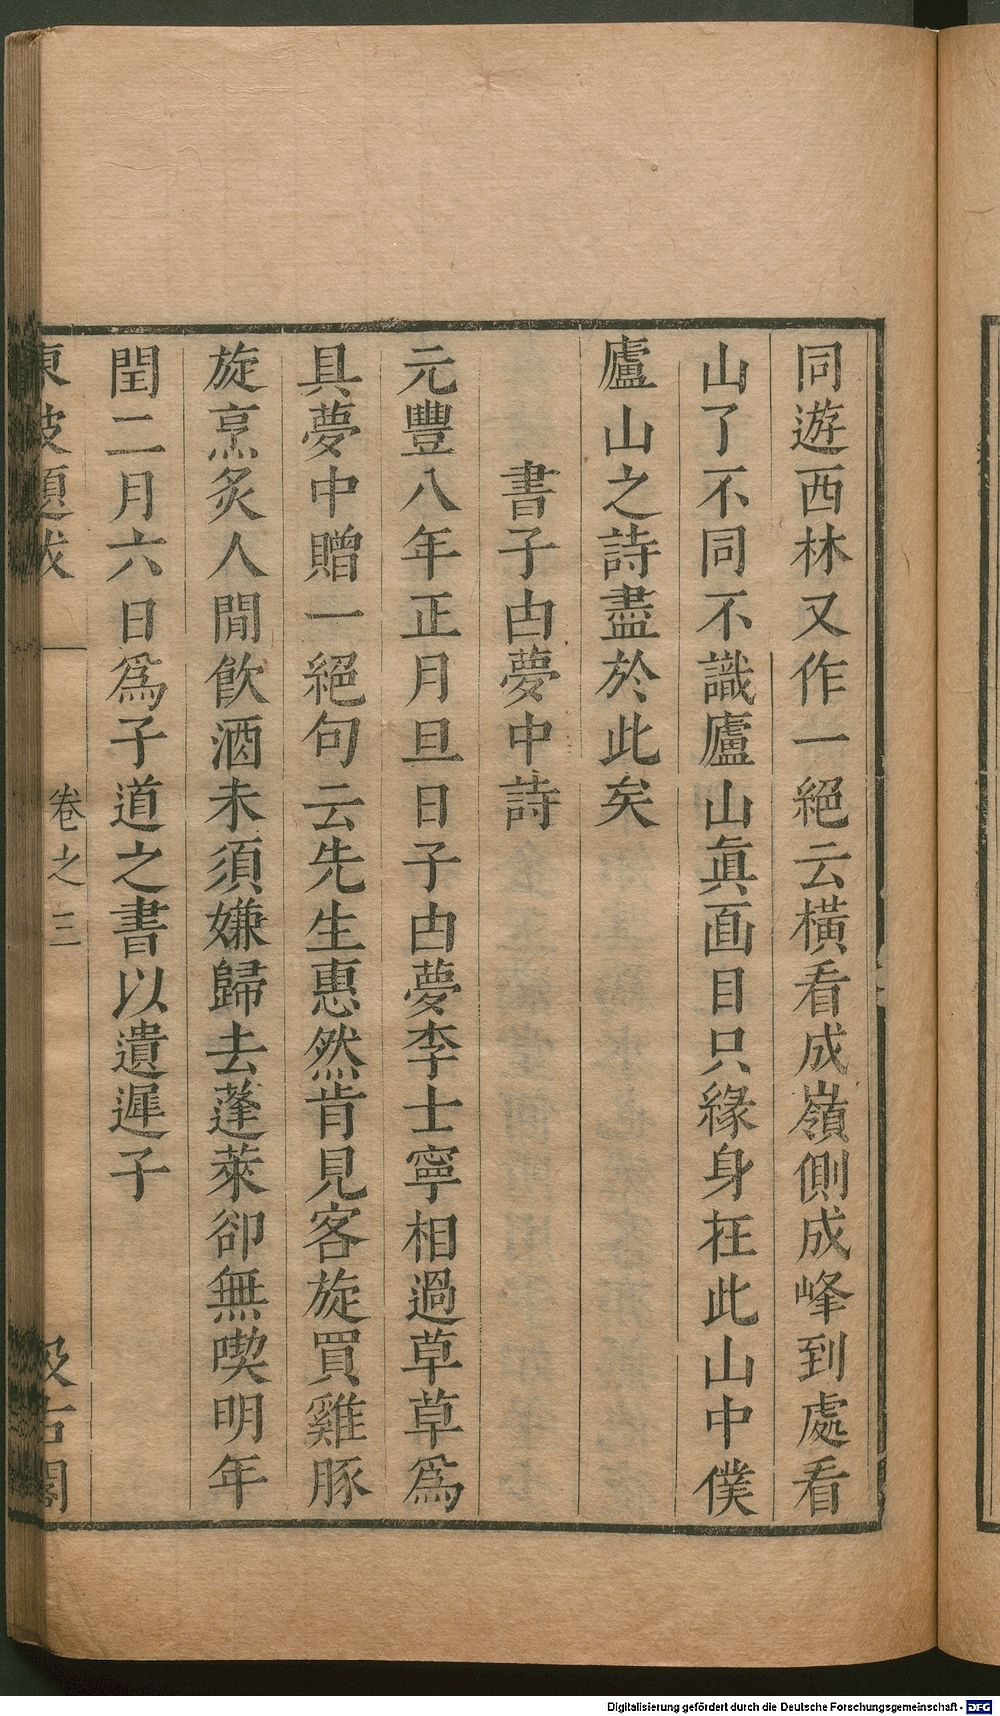 同遊西林又作一絕云橫看成嶺側成峰到處看
山了不同不識廬山眞面目只緣身在此山中僕
廬山之詩盡於此矣
書子由夢中詩
元豐八年正月旦日子由夢李士寧相過草草爲
具夢中贈一絕句云先生惠然肯見客旋買雞豚
旋烹炙人間飮酒未須嫌歸去蓬萊卻無喫明年
閏二月六日爲子道之書以遺遲子
東坡題跋
卷之三
汲古閣
Digitalisierung gefördert durch die Deutsche Forschungsgemeinschaft - DFG